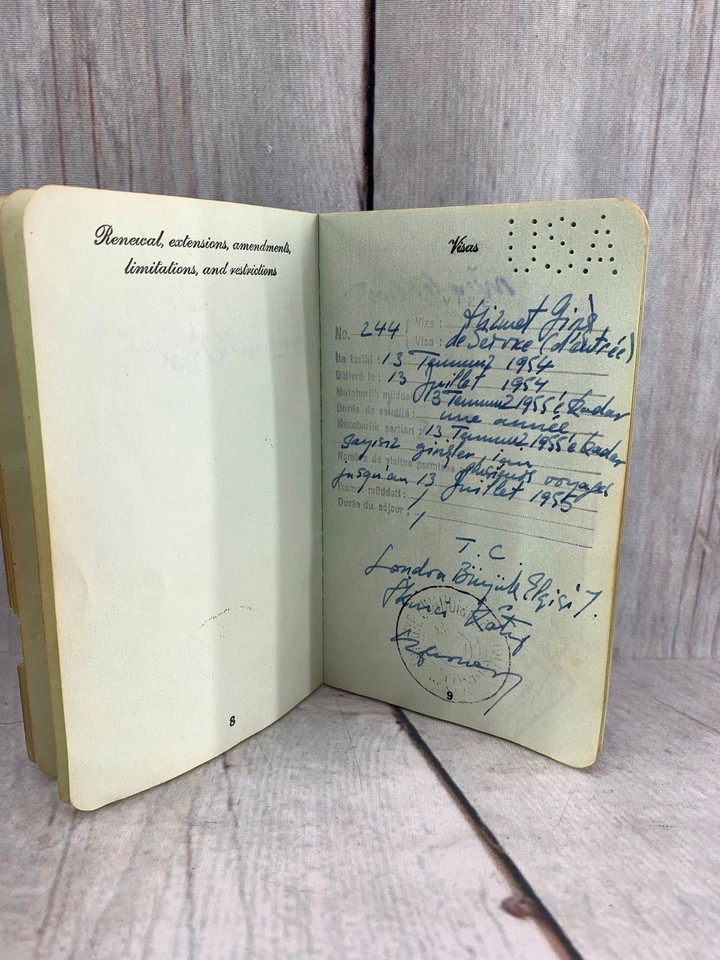 Renewal, extensions, amendments,
limitations, and restrictions
8
Visas
USA
No. 244 Visa : Hizmet Giriş
Visa : de Service (d'entrée)
İta tarihi : 13 Temmuz 1954
Délivré le : 13 Juillet 1954
Muteberlik müddeti 13 Temmuz 1955'e kadar
Durée de validité : une année
Muteberlik şartları : 13 Temmuz 1955'e kadar
sayısız girişler için
Nombre de visites permises plusieurs voyages
jusqu'au 13 Juillet 1955
müddeti : /
Durée du séjour : /
T. C.
Londra Büyük Elçisi Y.
Kâtip
9